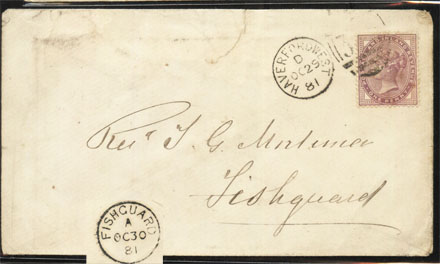 HAVERFORDWEST
D
OC 29
81
Revd. T. G. Mortimer
Fishguard
FISHGUARD
A
OC 30
81